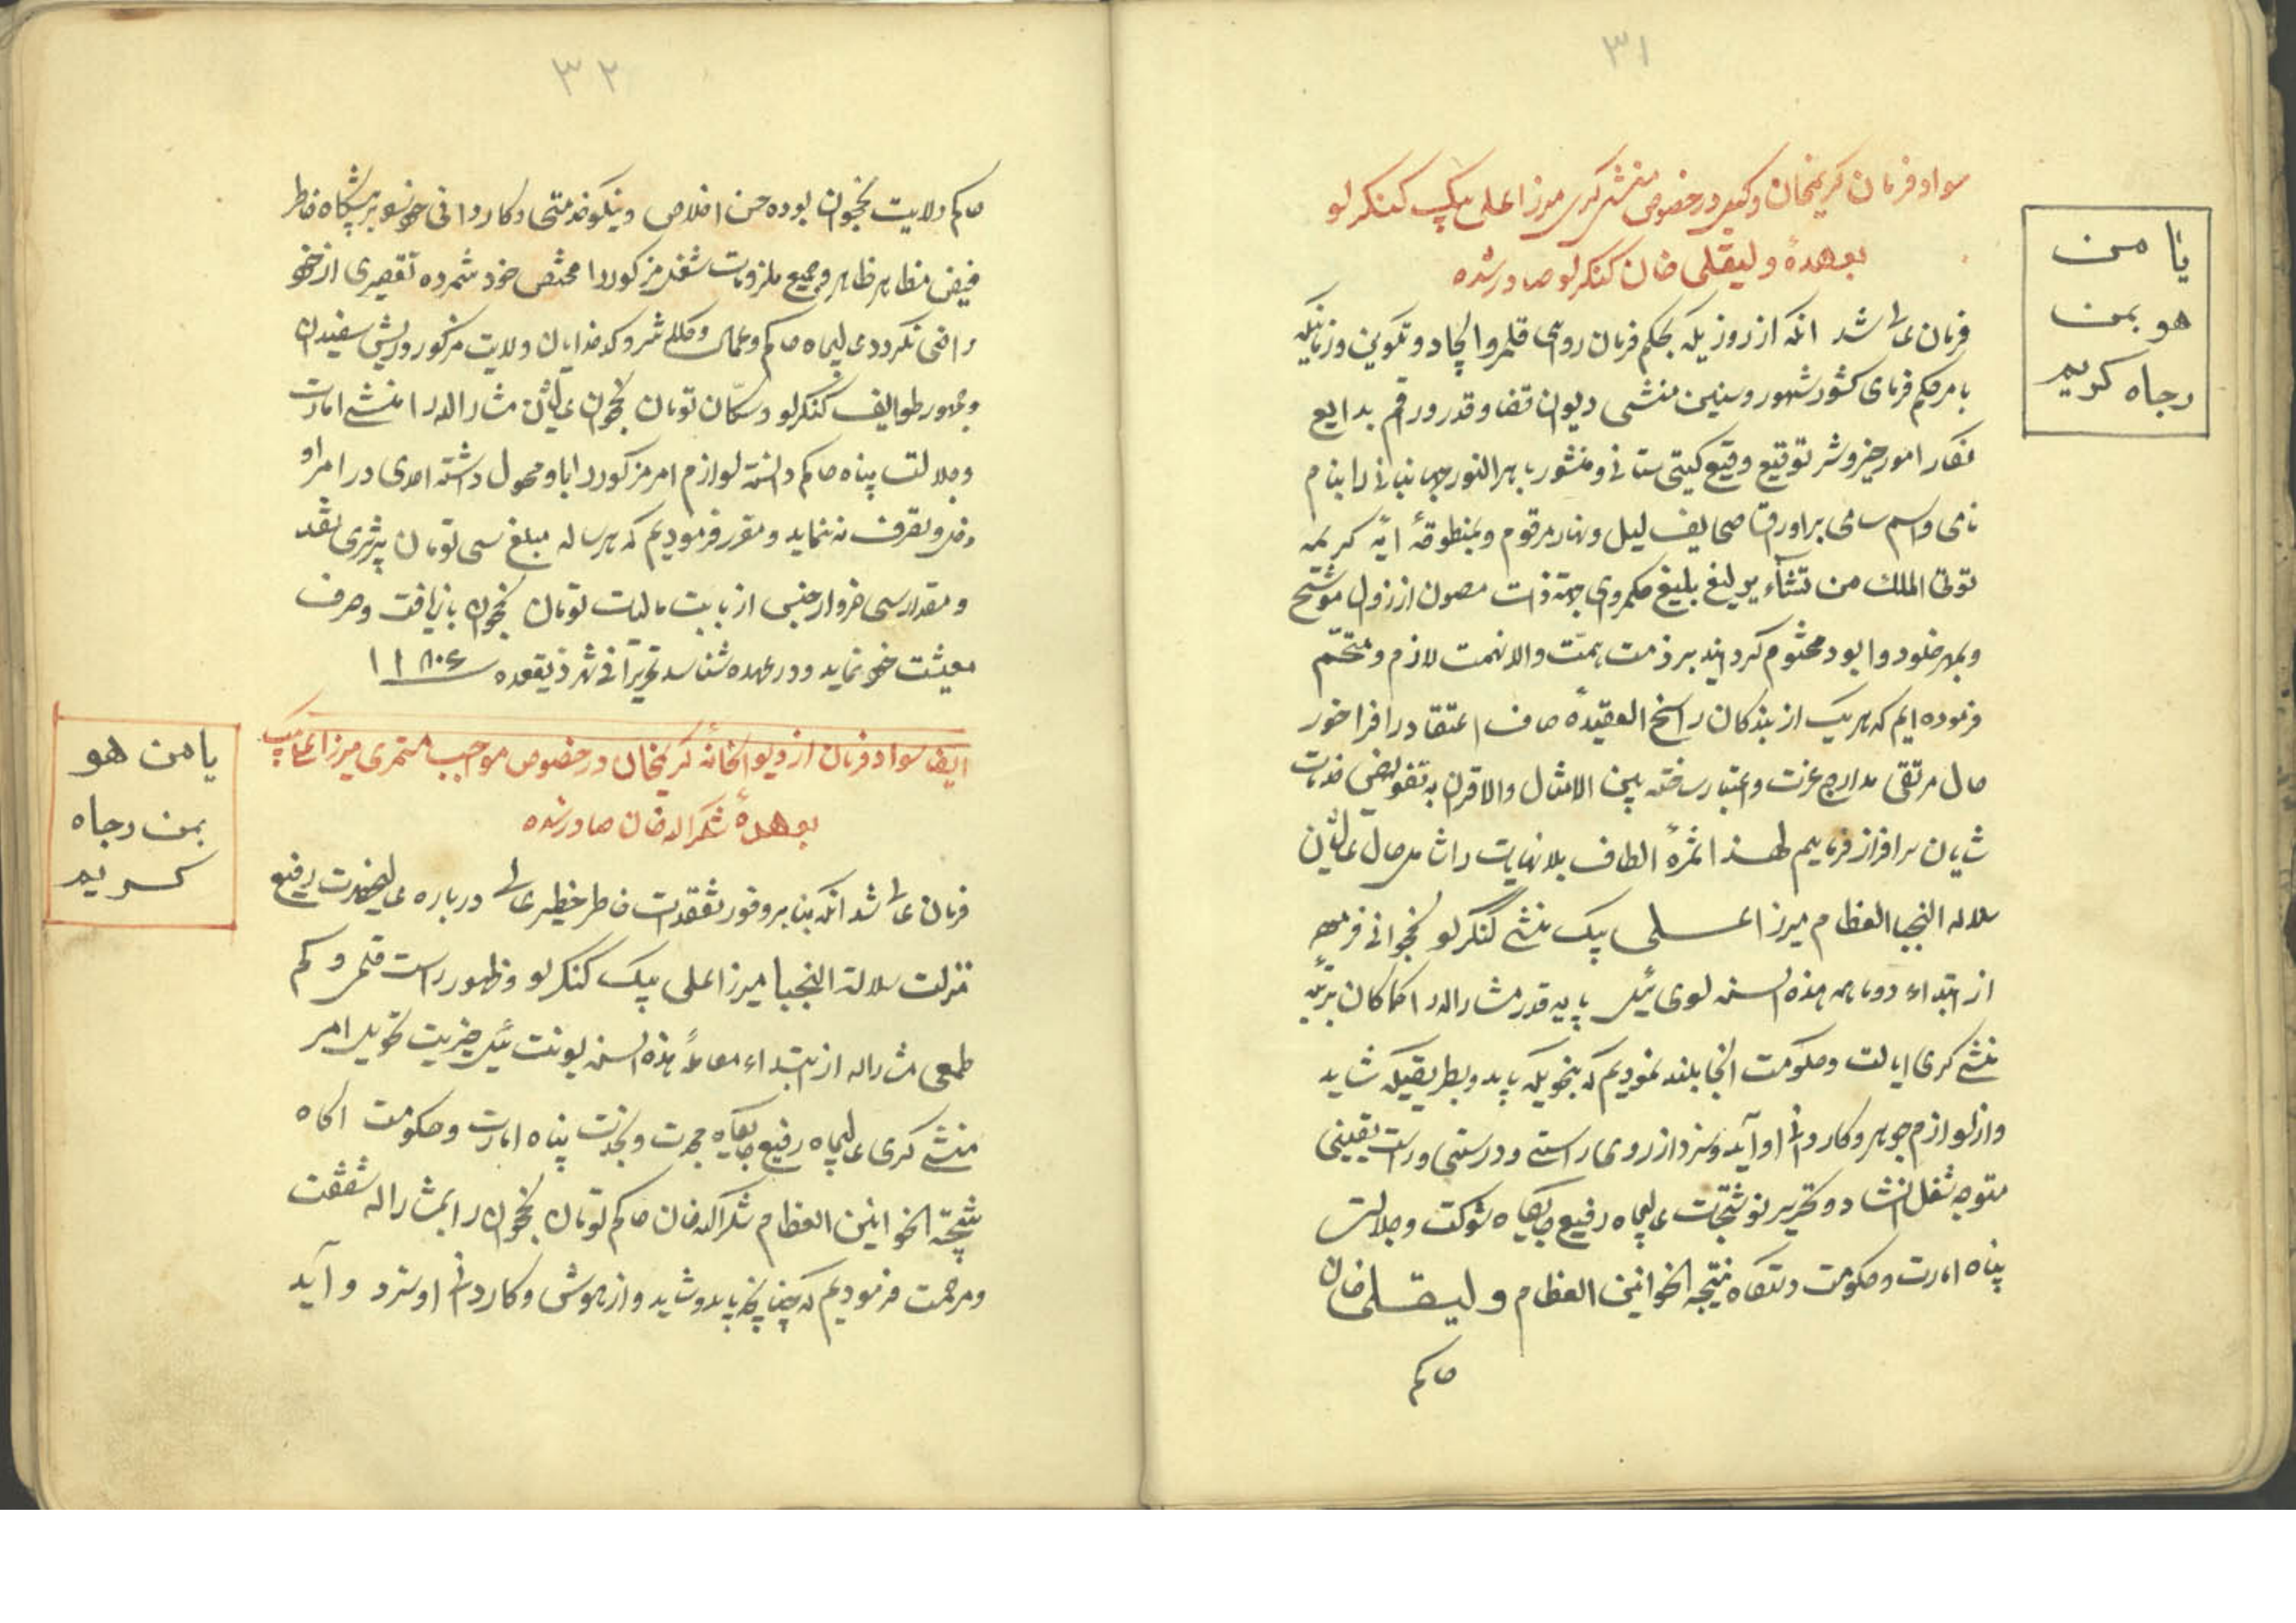 ۳۱
سواد فرمان کریمخان وکیل در خصوص منشی کری میرزا علی بیک کنکرلو
بعهدهٔ ولیقلی خان کنکرلو صادر شده
یا من
هو بمن
رجاه کریم
فرمان عالی شد انکه از روزیکه بحکم فرمان روای قلمرو ایجاد و تکوین و زمانیکه
بامر حکم فرمای کشور شهور و سنین منشی دیوان قضا و قدر و رقم بدایع
نگار امور خیر و شر توقیع وقیع کیتی ستانی و منشور باهرالنور جهانبانی را بنام
نامی و اسم سامی بر اوراق صحایف لیل و نهار مرقوم و بمنطوقهٔ ایه کریمه
توتی الملک من تشآء یرلیغ بلیغ حکمروی بهمه ذات مصون از زوال موشح
و بمهر خلود و ابود مختوم کردانید بر ذمت همت والانهمت لازم و متحتم
فرموده ایم که هر یک از بندکان راسخ العقیدهٔ صاف اعتقاد را فراخور
حال مرتقی مدارج عزت و اعتبار ساخته بین الامثال والاقران به تفویض خدمات
شایان سرافراز فرماییم لهذا ثمرهٔ الطاف بلانهایت را شامل حال عالیشان
سلاله النجبا العظام میرزا علی بیک منشی کنکرلو نخجوانی فرموده
از ابتداء دوماهه هذه السنه لوی ئیل پایه قدر مشارالیه را کماکان برتبه
منشی کری ایالت و حکومت انجا بلند نمودیم که بنحویکه باید و بطریقیکه شاید
و از لوازم جوهر و کاردانی او آید و سزد از روی راستی و درستی و راست یقینی
متوجه شغل انشاد و تحریر نوشتجات عالیجاه رفیع جایکاه شوکت و جلالت
پناه امارت و حکومت دستکاه نتیجه الخوانین العظام ولیقلی خان
حاکم
۳۲
حاکم ولایت نخجوان بوده حسن اخلاص و نیکو خدمتی و کاردانی خود را بر پیشکاه خاطر
فیض مظاهر ظاهر و جمیع ملزومات شغل مزکور را مختص خود شمرده تقصیری از خود
راضی نکردد عالیجاه حاکم و عمال و کلانتر و کدخدایان ولایت مزکور و ریش سفیدان
و جمهور طوایف کنکرلو و سکان تومان نخجوان عالیشان مشارالیه را منشی امارت
و جلالت پناه حاکم دانسته لوازم امر مزکور را باو محول داشته احدی در امر او
دخل و تصرف نه نماید و مقرر فرمودیم که هر ساله مبلغ سی تومان تبریزی نقد
و مقدار سی خروار جنس از بابت مالیات تومان نخجوان بازیافت و صرف
معیشت خود نماید و در عهده شناسد تحریراً فی شهر ذیقعده
یا من هو
بمن رجاه
کریم
ایضا سواد فرمان از دیوانخانه کریمخان در خصوص مواجب مستمری میرزا علی بیک
بعهدهٔ شکرالله خان صادر شده
فرمان عالی شد انکه بنا بر وفور تفقدات خاطر خطیر عالی درباره عالیحضرت رفیع
منزلت سلالة النجبا میرزا علی بیک کنکرلو و ظهور راست قلمی و کم
طمعی مشارالیه از ابتداء معامله هذه السنه یونت ئیل خیریت تحویل امر
منشی کری عالیجاه رفیع جایکاه مجدت و نجدت پناه امارت و حکومت اکاه
نتیجة الخوانین العظام شکرالله خان حاکم تومان نخجوان را بمشارالیه شفقت
و مرحمت فرمودیم که چنانچه باید و شاید و از هوش و کاردانی او سزد و آید